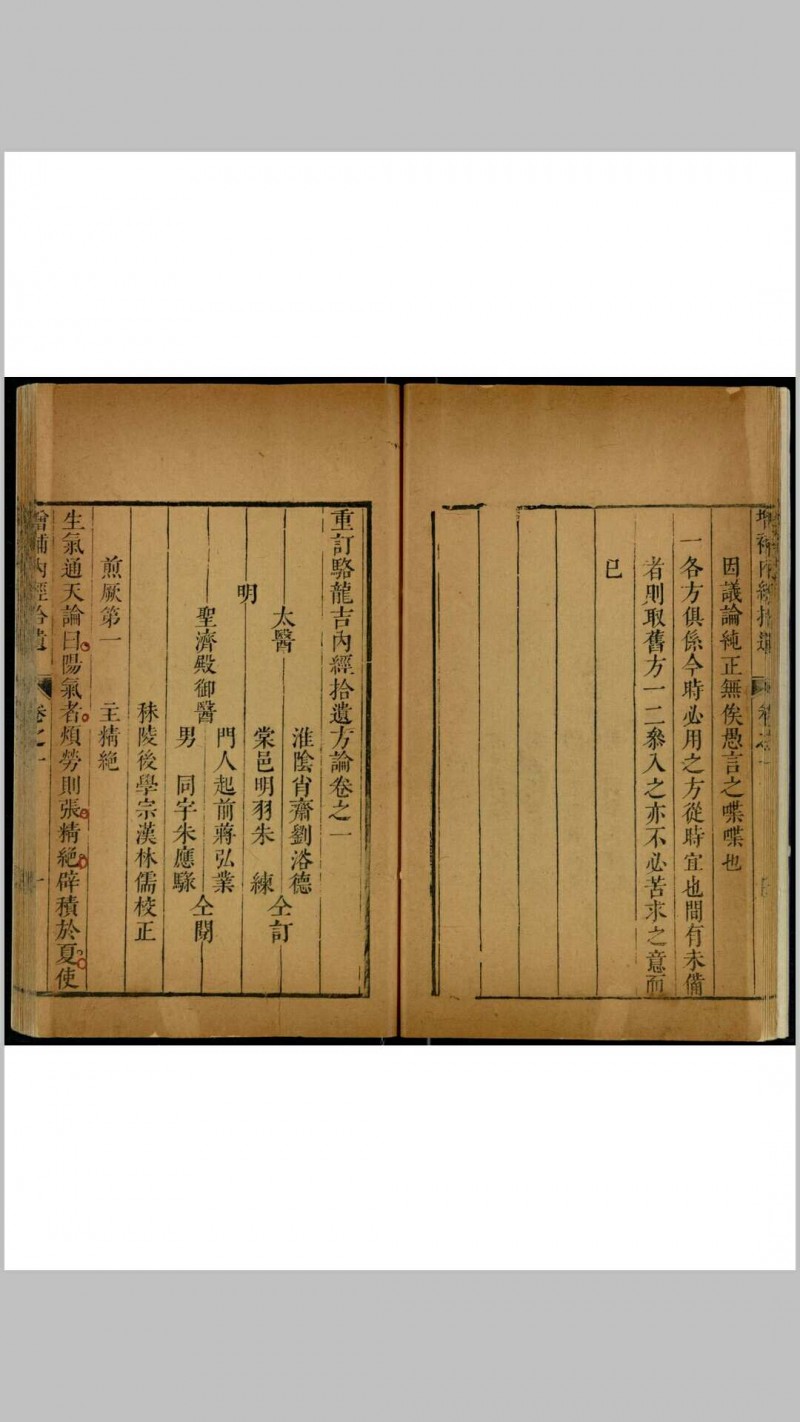 增補內經拾遺 卷之一
因議論純正無俟愚言之喋喋也
一各方俱係今時必用之方從時宜也間有未備
者則取舊方一二叅入之亦不必苦求之意而
已
重訂駱龍吉內經拾遺方論卷之一
淮陰肖齋劉浴德
太醫
棠邑明羽朱 練 仝訂
明
門人起前蔣弘業
聖濟殿御醫 仝閱
男 同宇朱應騄
秣陵後學宗漢林儒校正
煎厥第一 主精絶
生氣通天論曰陽氣者煩勞則張精絶辟積於夏使
增補內經拾遺 卷之一 一